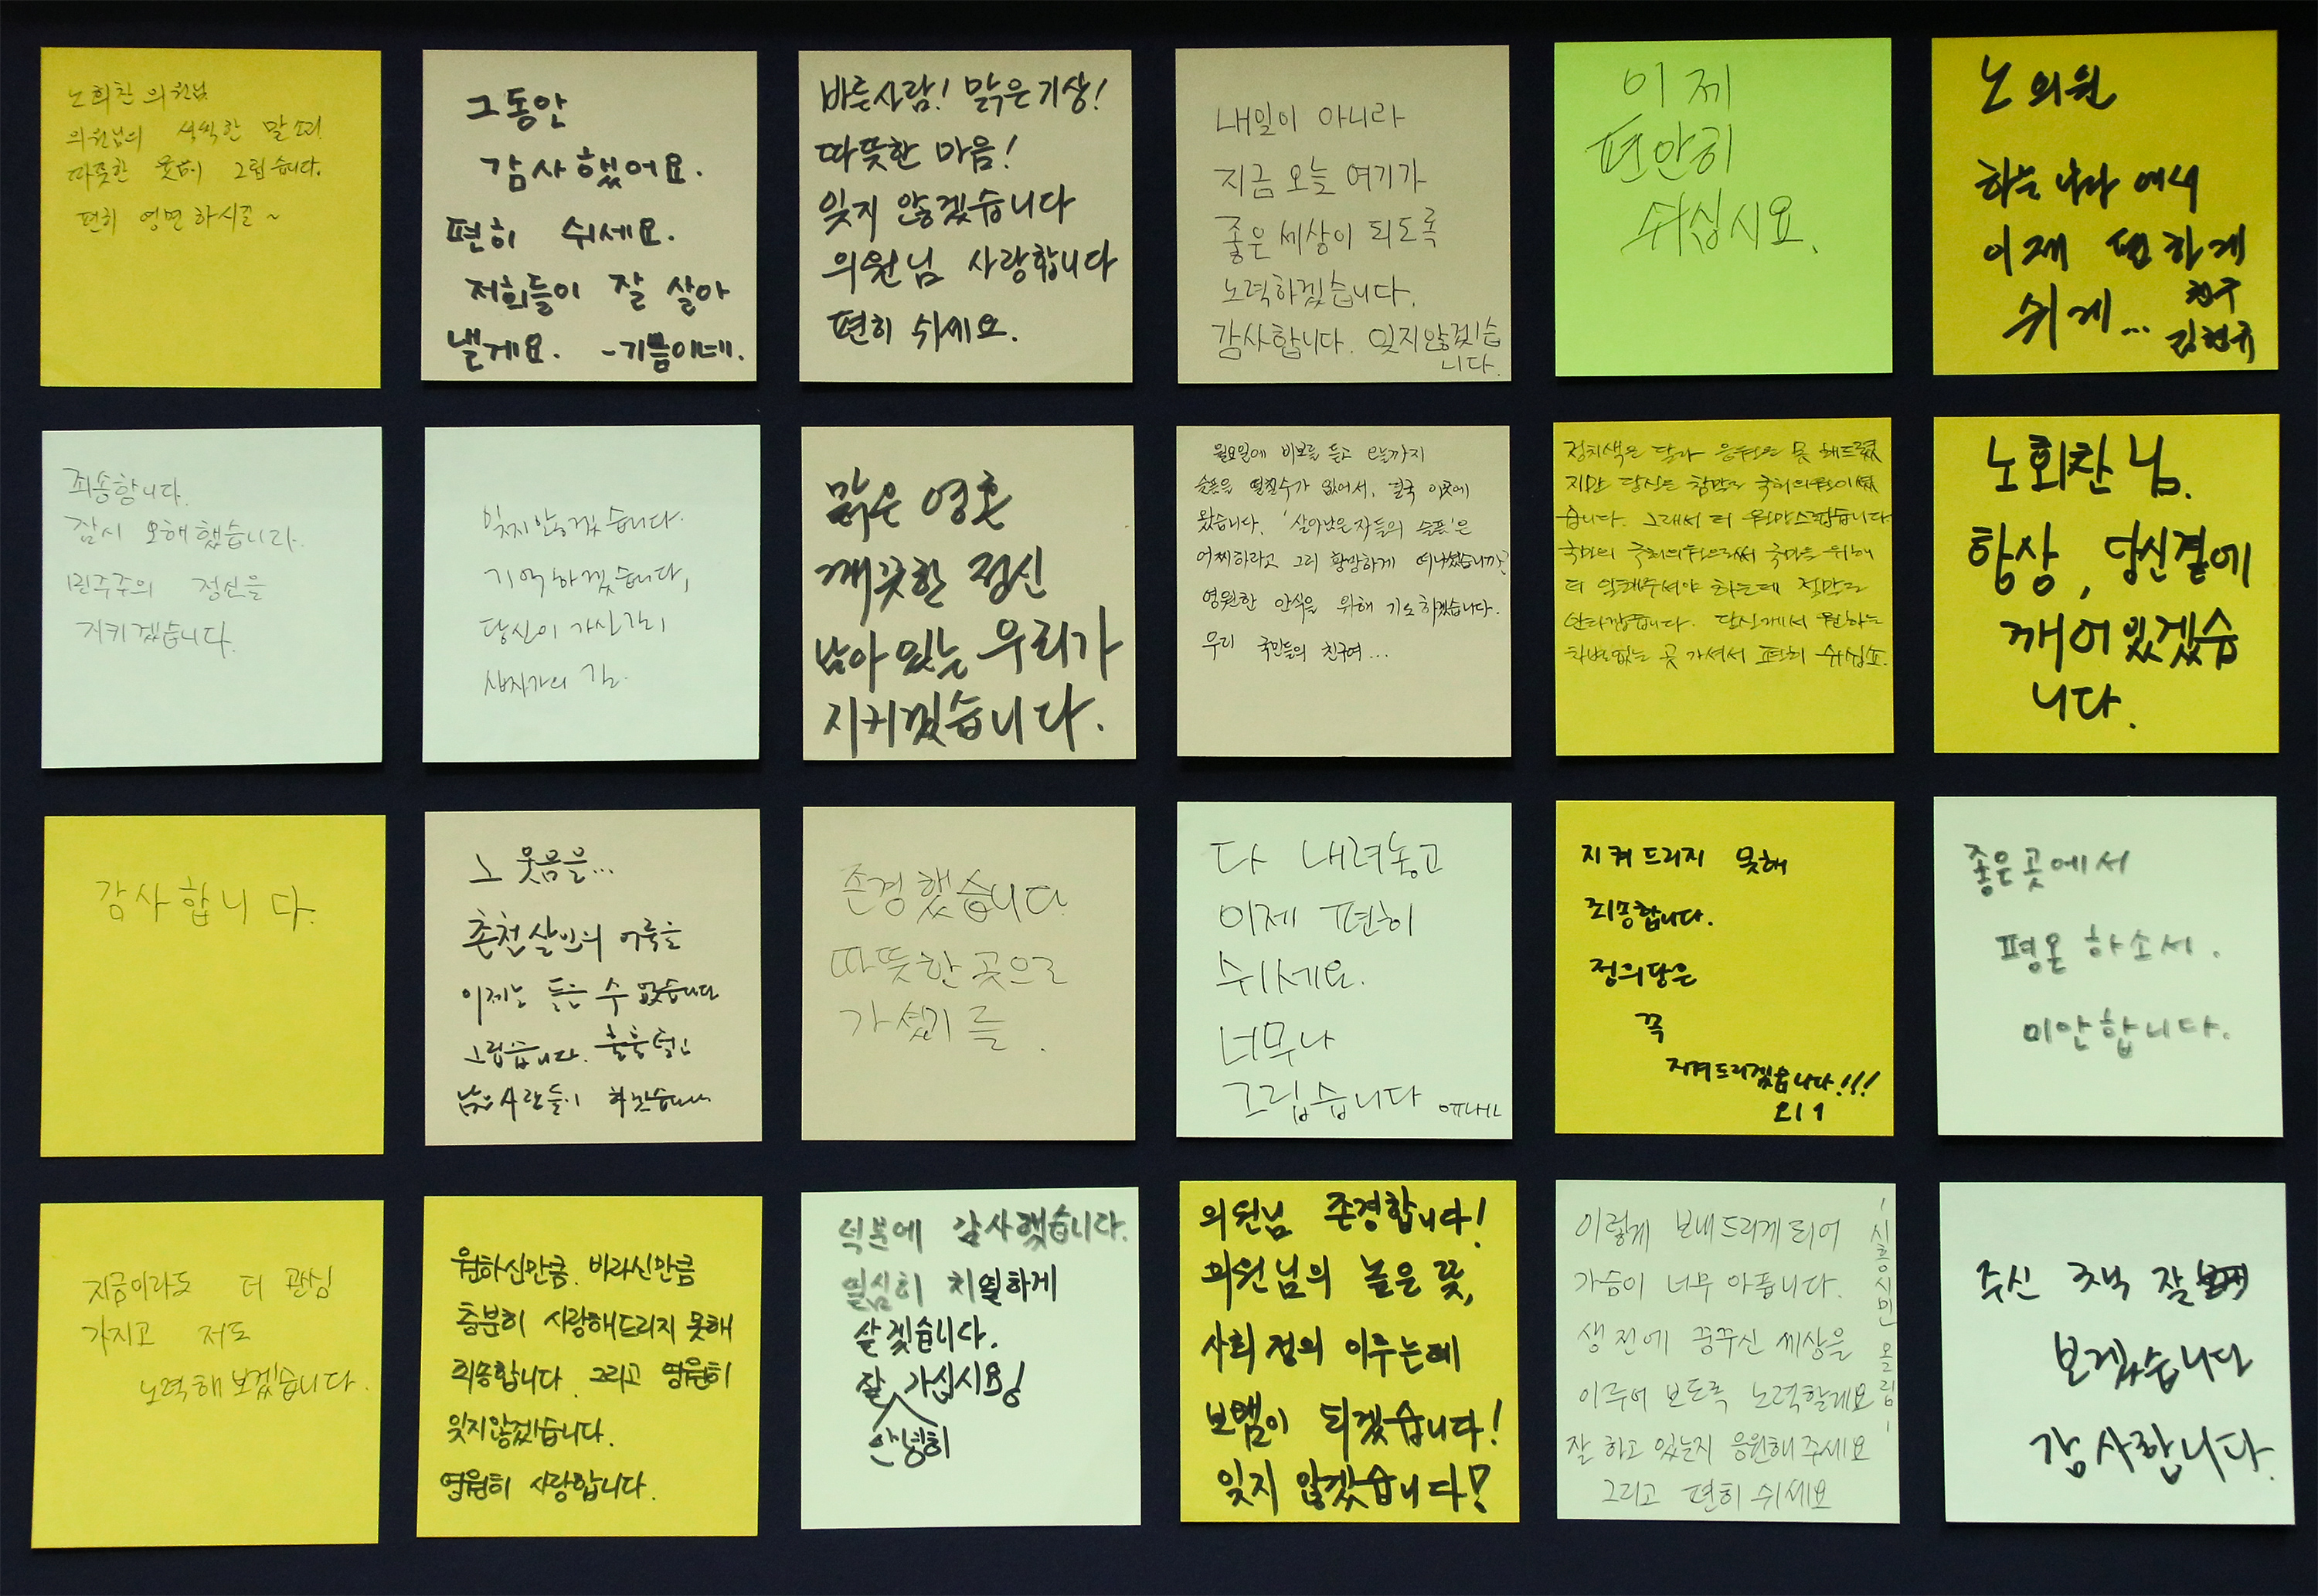 노회찬 의원님
의원님의 씩씩한 말소리
따뜻한 웃음이 그립습니다.
편히 영면하시길~
그동안
감사했어요.
편히 쉬세요.
저희들이 잘 살아
낼게요. -기쁨이네.
바른사람! 맑은기상!
따뜻한 마음!
잊지 않겠습니다
의원님 사랑합니다
편히 쉬세요.
내일이 아니라
지금 오늘 여기가
좋은 세상이 되도록
노력하겠습니다.
감사합니다. 잊지않겠습
니다.
이제
편안히
쉬십시요.
노 의원
하늘나라에서
이제 편하게
쉬게...
친구
김현규
죄송합니다.
잠시 오해했습니다.
민주주의 정신을
지키겠습니다.
잊지않겠습니다.
기억하겠습니다.
당신이 가신길이
십자가의 길.
맑은 영혼
깨끗한 정신
남아 있는 우리가
지키겠습니다.
월요일에 비보를 듣고 오늘까지
슬픔을 떨칠수가 없어서, 결국 이곳에
왔습니다. '살아남은자들의 슬픔'은
어찌하라고 그리 황망하게 떠나셨습니까?
영원한 안식을 위해 기도하겠습니다.
우리 국민들의 친구여...
정치색은 달라 응원은 못 해드렸
지만 당신은 참말로 국회의원이셨
습니다. 그래서 더 원망스럽습니다
국민의 국회의원으로써 국민을 위해
더 일해주셔야 하는데 정말로
안타깝습니다. 당신께서 원하는
차별없는 곳 가셔서 편히 쉬십쇼.
노회찬님.
항상, 당신곁에
깨어있겠습
니다.
감사합니다.
그 웃음을...
촌철살인의 어록을
이제는 들을 수 없습니다
그립습니다. 훌훌털고
남은사람들이 하겠습니다
존경했습니다
따뜻한 곳으로
가셨기를.
다 내려놓고
이제 편히
쉬세요.
너무나
그립습니다
지켜드리지 못해
죄송합니다.
정의당은
꼭
지켜드리겠습니다!!!
좋은곳에서
평온하소서.
미안합니다.
지금이라도 더 관심
가지고 저도
노력해보겠습니다.
원하신만큼. 바라신만큼
충분히 사랑해드리지 못해
죄송합니다. 그리고 영원히
잊지않겠습니다.
영원히 사랑합니다.
덕분에 감사했습니다.
열심히 치열하게
살겠습니다.
잘 가십시요!
안녕히
의원님 존경합니다!
의원님의 높은 뜻,
사회 정의 이루는데
보탬이 되겠습니다!
잊지 않겠습니다!
이렇게 보내드리게되어
가슴이 너무 아픕니다.
생전에 꿈꾸신 세상을
이루어 보도록 노력할게요
잘 하고 있는지 응원해주세요
그리고 편히쉬세요
-시흥시민 올림-
주신 책 잘
보겠습니다
감사합니다.